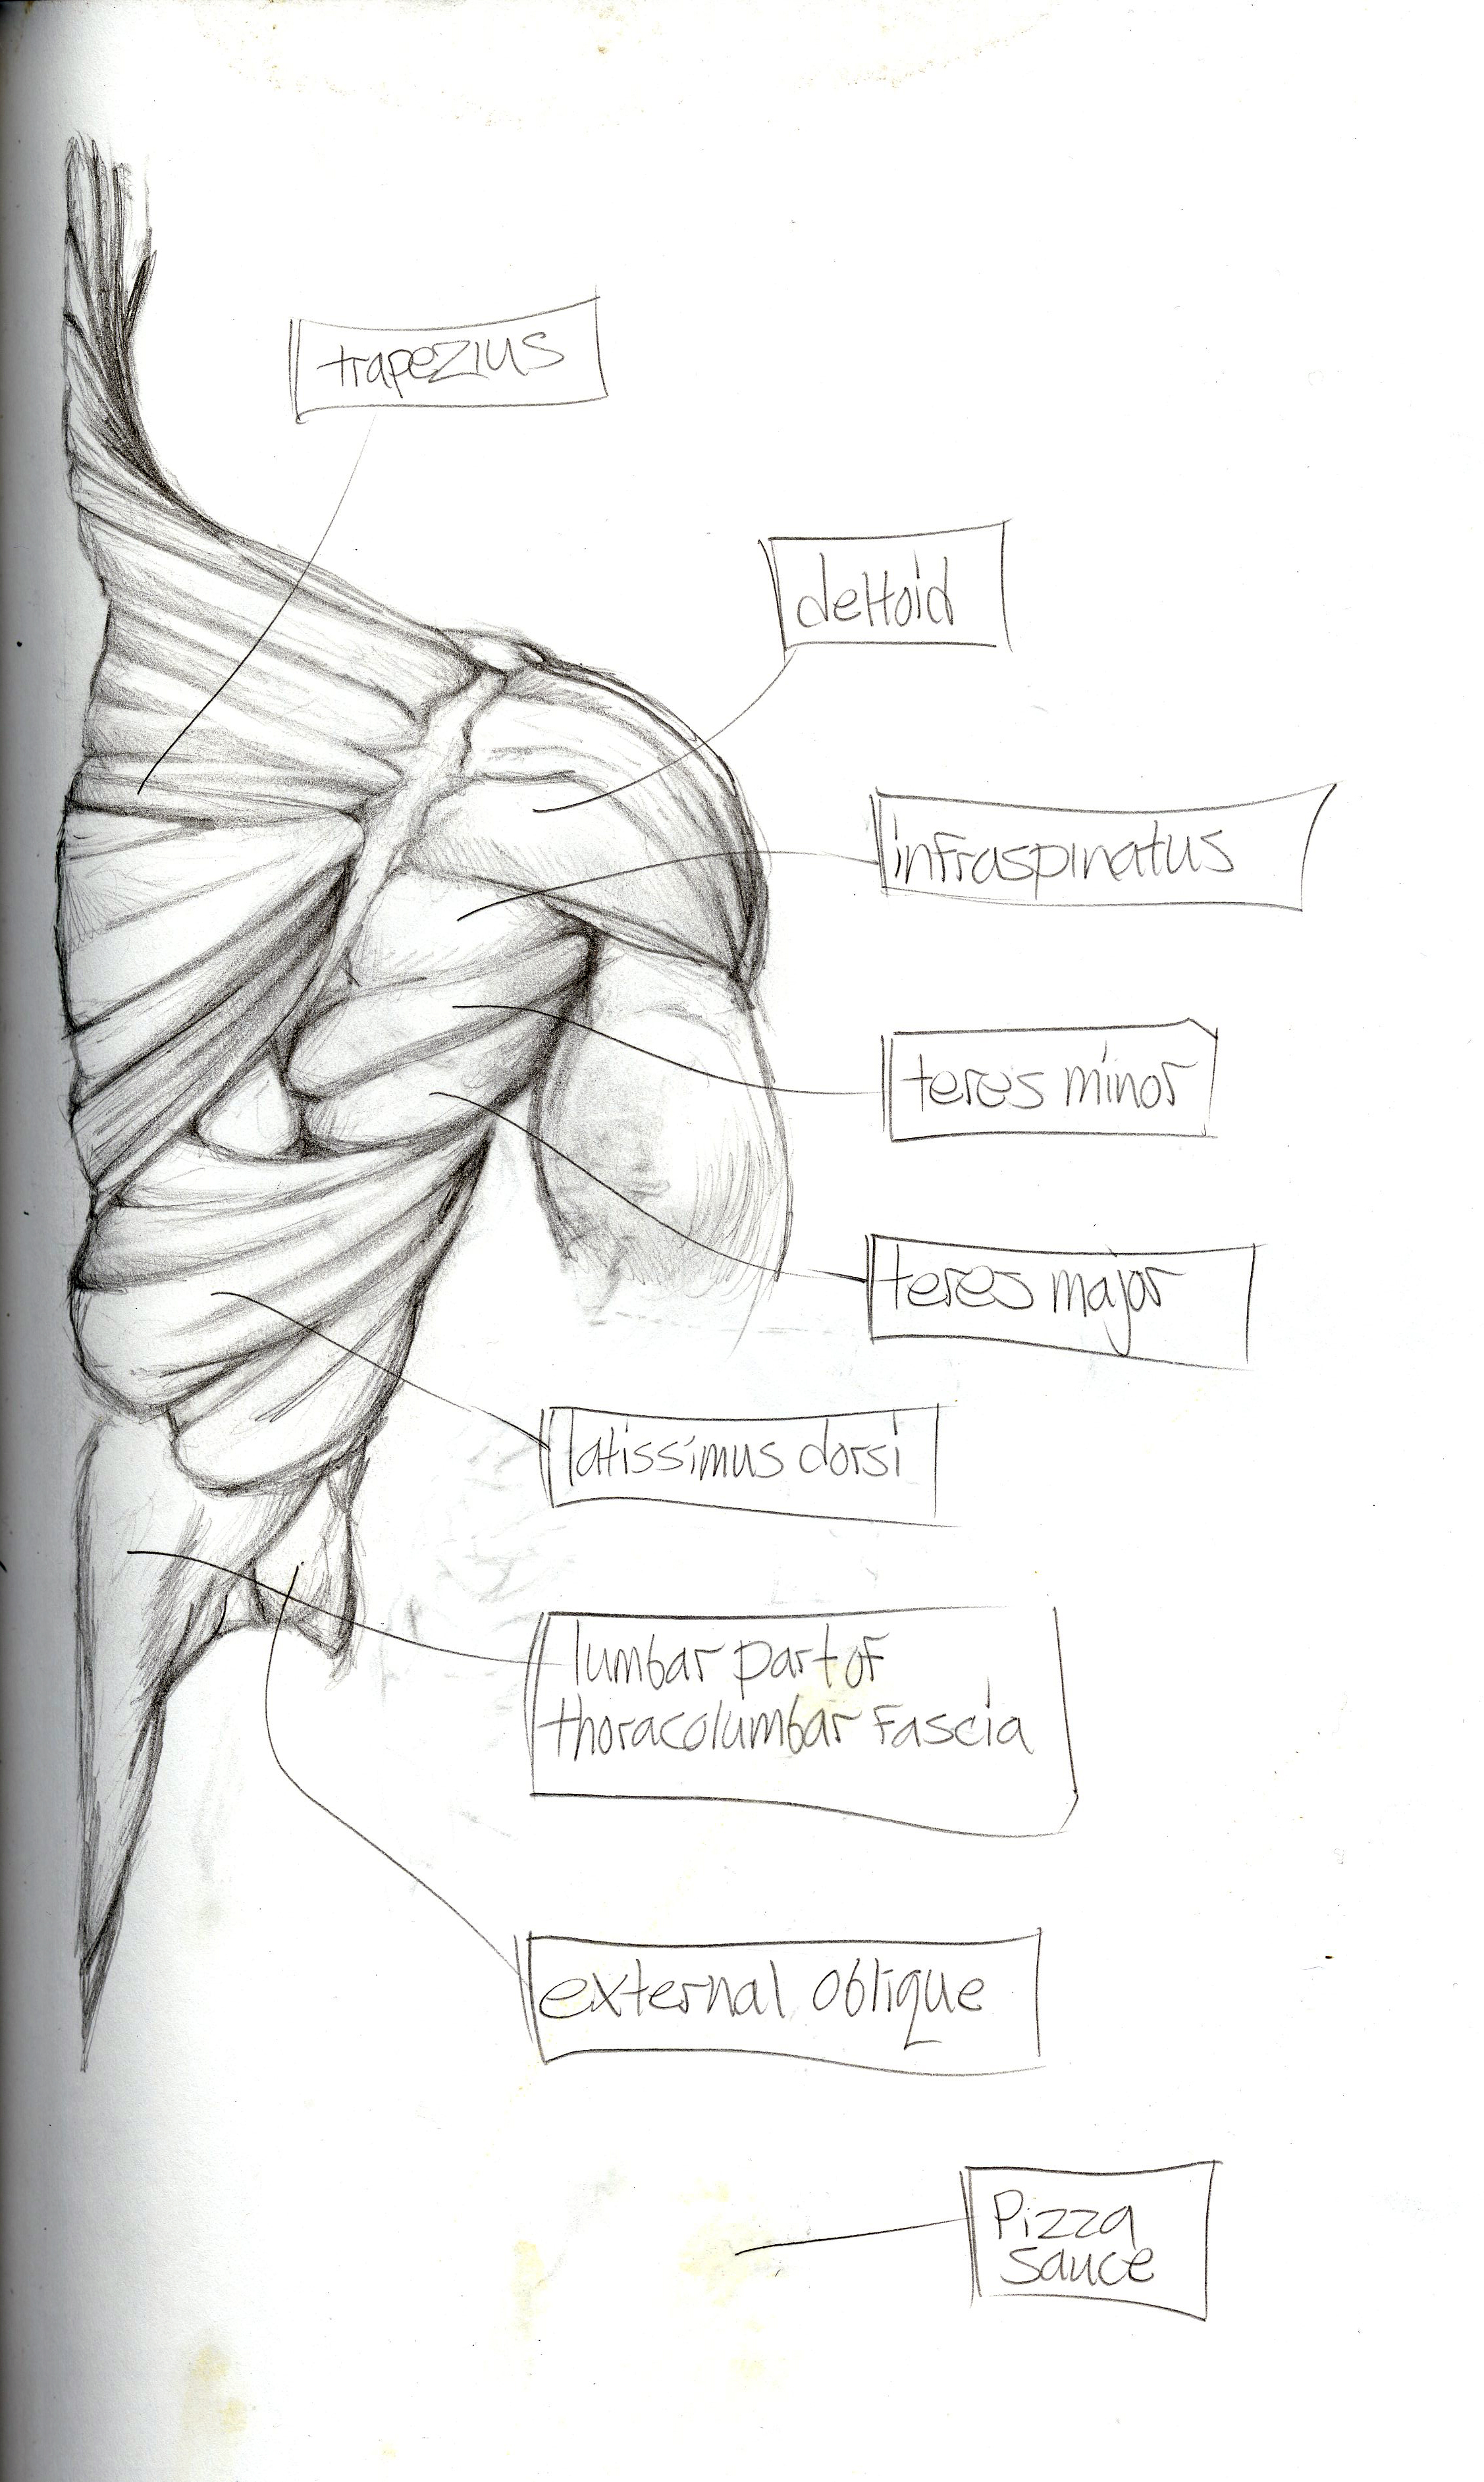 trapezius
deltoid
infraspinatus
teres minor
teres major
latissimus dorsi
lumbar part of
thoracolumbar fascia
external oblique
Pizza
sauce